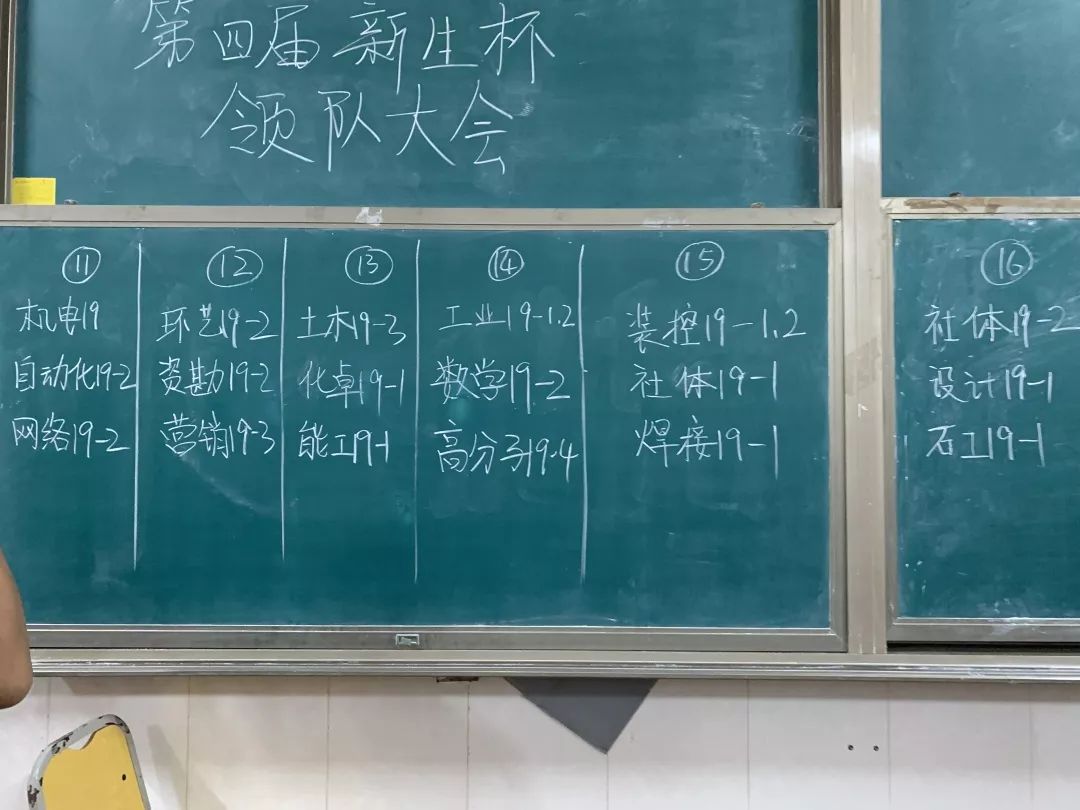 第四届新生杯
领队大会
⑪
机电19
自动化19-2
网络19-2
⑫
环艺19-2
资勘19-2
营销19-3
⑬
土木19-3
化卓19-1
能工19-1
⑭
工业19-1.2
数学19-2
高分子19-4
⑮
装控19-1.2
社体19-1
焊接19-1
⑯
社体19-2
设计19-1
石工19-1